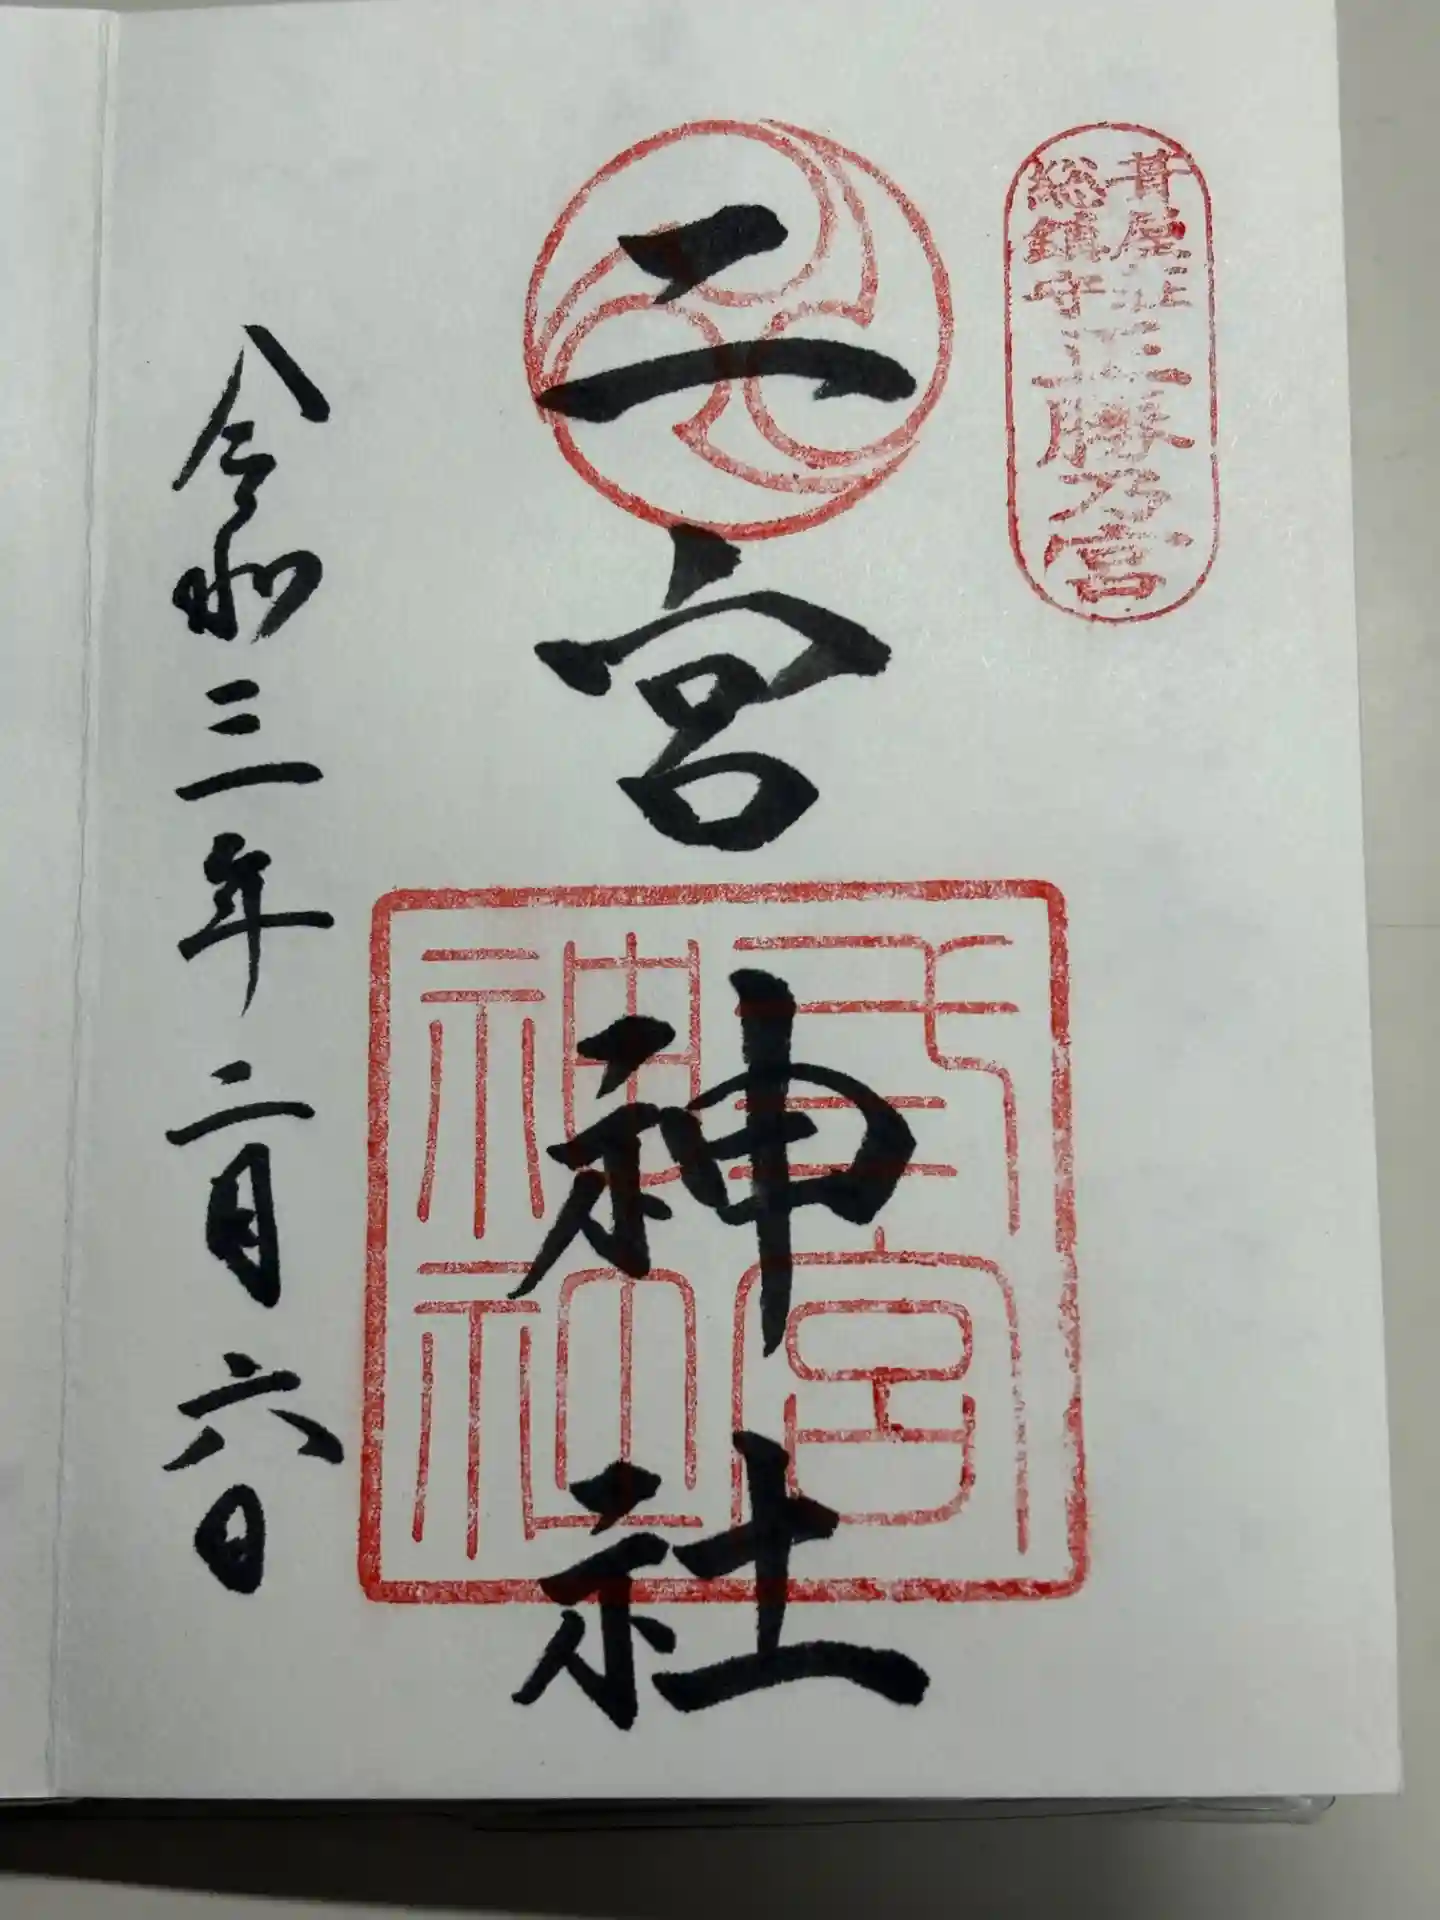 葺屋庄
総鎮守
正勝乃宮
二宮神社
弍宮
神社
令和三年二月六日